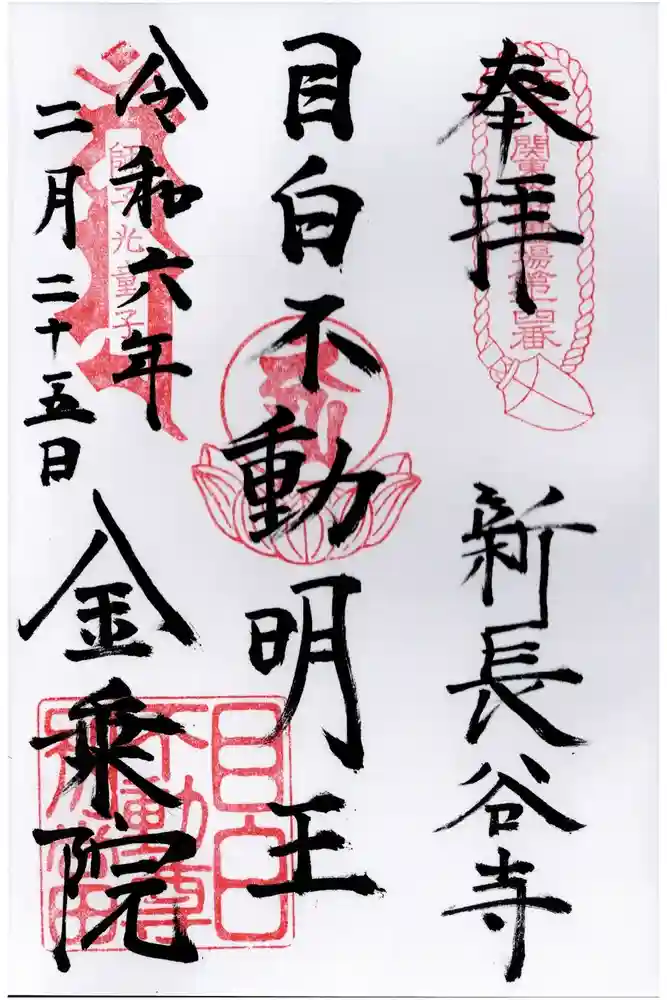 奉拝
新長谷寺
関東
場第十四番
目白不動明王
令和六年
二月二十五日
師子光童子
金乗院
目白
不動尊